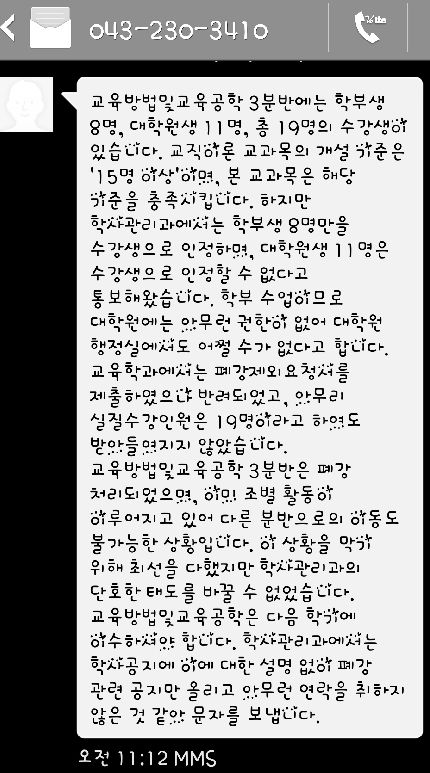 043-230-3410
교육방법및교육공학 3분반에는 학부생
8명, 대학원생 11명, 총 19명의 수강생이
있습니다. 교직이론 교과목의 개설 기준은
'15명 이상'이며, 본 교과목은 해당
기준을 충족시킵니다. 하지만
학사관리과에서는 학부생 8명만을
수강생으로 인정하며, 대학원생 11명은
수강생으로 인정할 수 없다고
통보해왔습니다. 학부 수업이므로
대학원에는 아무런 권한이 없어 대학원
행정실에서도 어쩔 수가 없다고 합니다.
교육학과에서는 폐강제외요청서를
제출하였으나 반려되었고, 아무리
실질수강인원은 19명이라고 하여도
받아들여지지 않았습니다.
교육방법및교육공학 3분반은 폐강
처리되었으며, 이미 조별 활동이
이루어지고 있어 다른 분반으로의 이동도
불가능한 상황입니다. 이 상황을 막기
위해 최선을 다했지만 학사관리과의
단호한 태도를 바꿀 수 없었습니다.
교육방법및교육공학은 다음 학기에
이수하셔야 합니다. 학사관리과에서는
학사공지에 이에 대한 설명 없이 폐강
관련 공지만 올리고 아무런 연락을 취하지
않은 것 같아 문자를 보냅니다.
오전 11:12 MMS